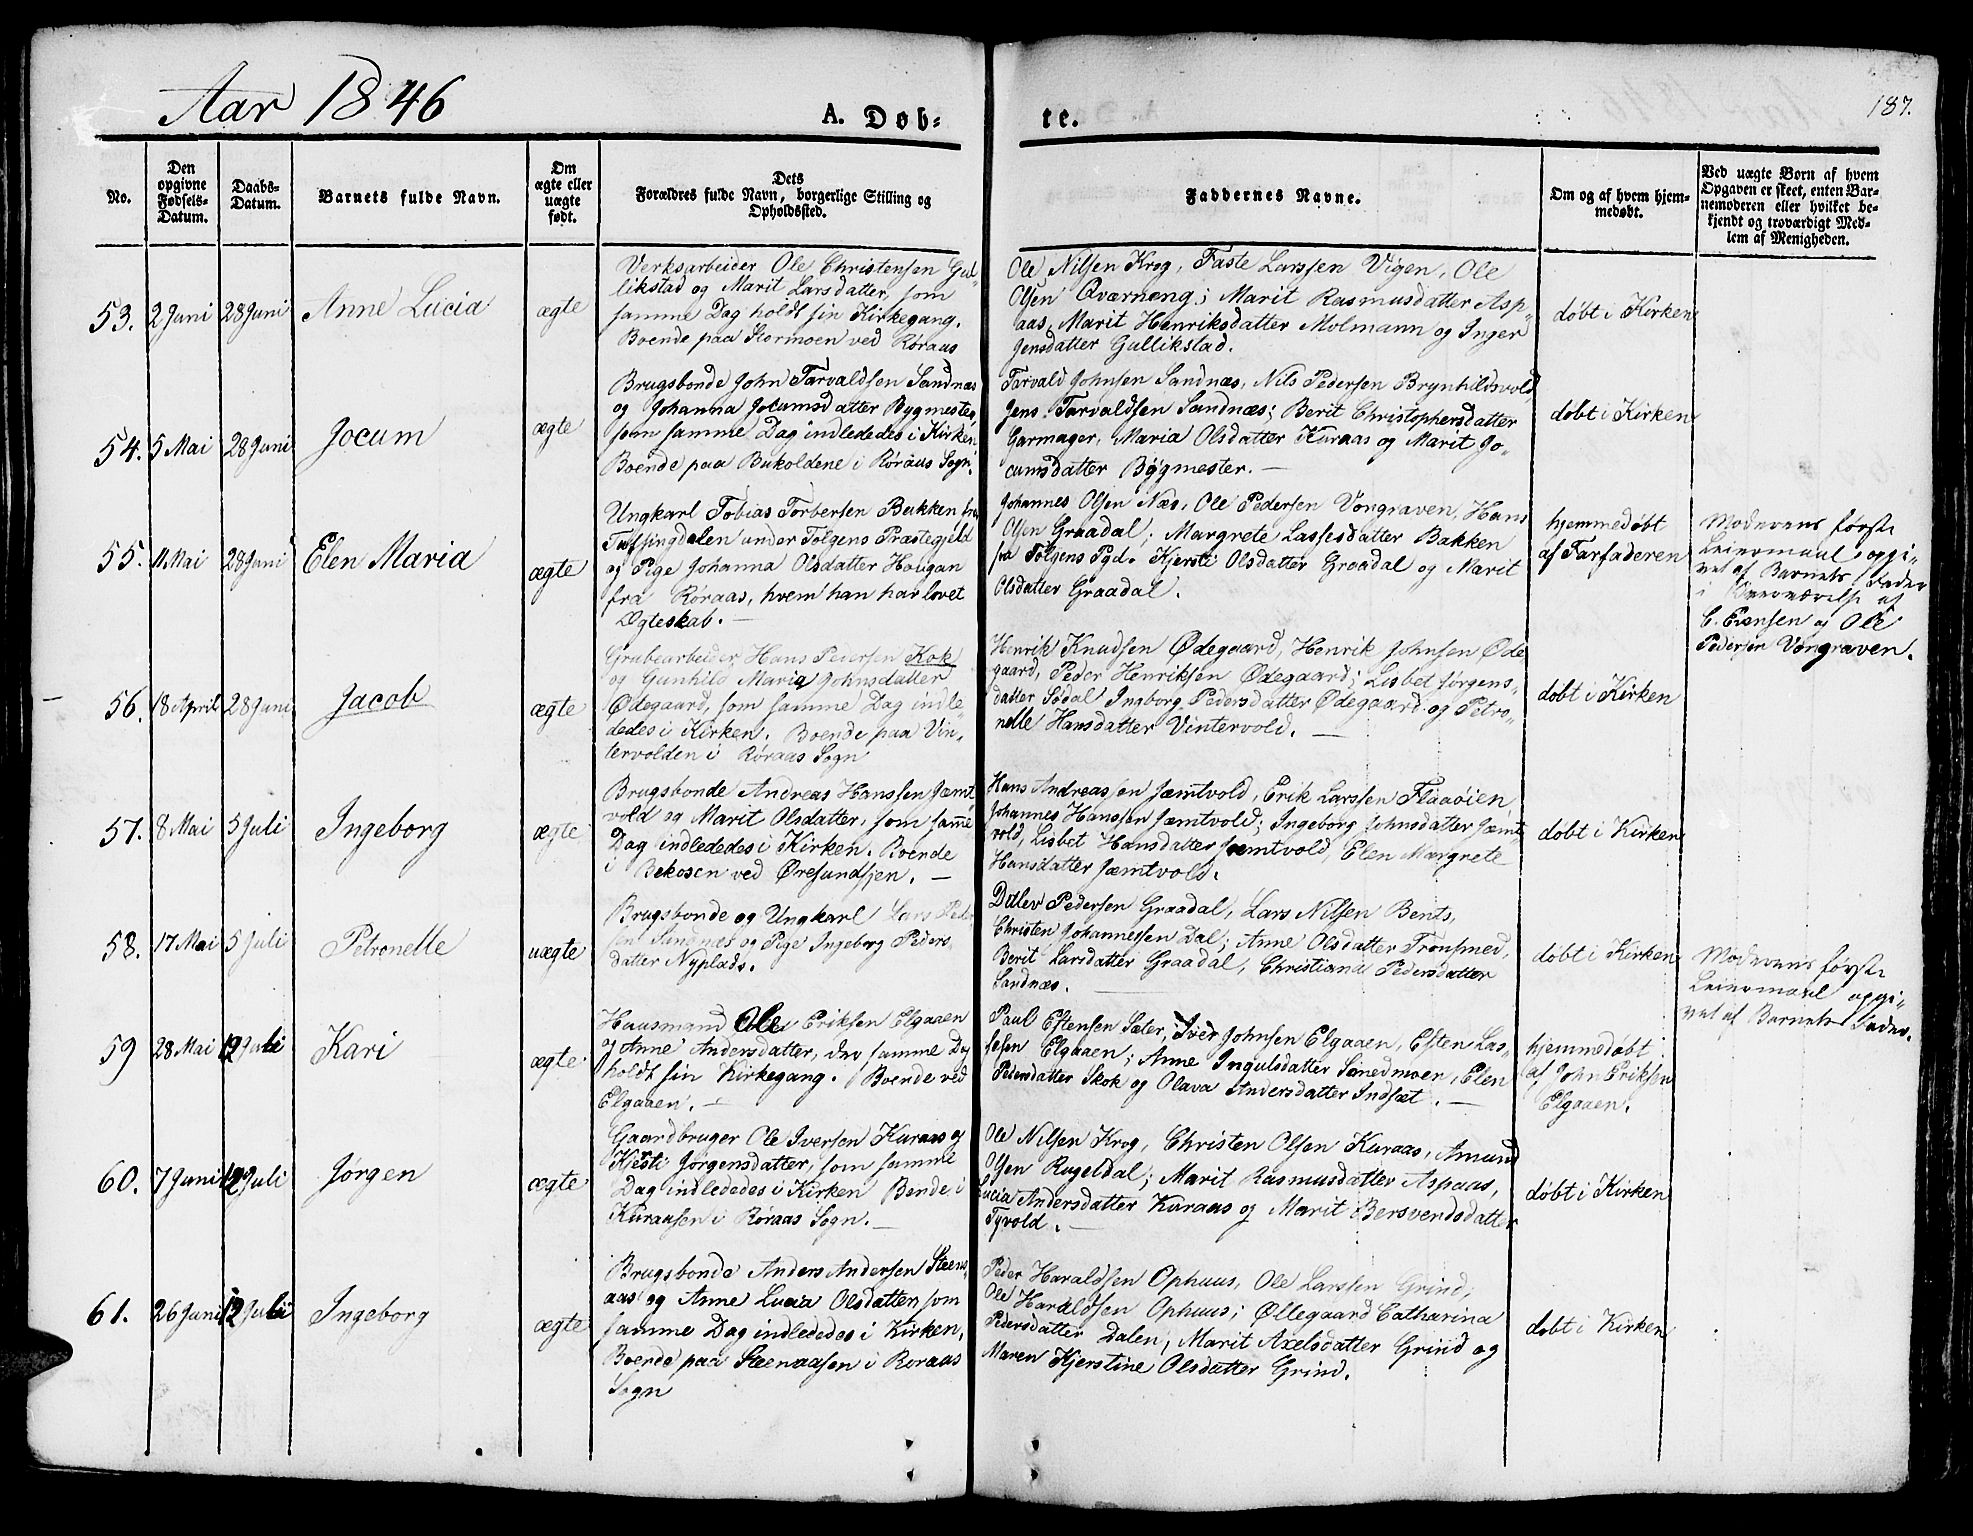 Aar 1846
A. Døb-
te.
187.
No.
Den
opgivne
Fødsels-
Datum.
Daabs-
Datum.
Barnets fulde Navn.
Om
ægte eller
uægte
født.
Dets
Forældres fulde Navn, borgerlige Stilling og
Opholdssted.
Faddernes Navne.
Om og af hvem hjem-
medøbt.
Ved uægte Børn af hvem
Opgaven er skeet, enten Bar-
nemoderen eller hvilket be-
kjendt og troværdigt Med-
lem af Menigheden.
53. 2 Juni 28 Juni Anne Lucia ægte
Verksarbeider Ole Christensen Gul-
likstad og Marit Larsdatter, som
samme Dag holdt sin Kirkegang.
Boende paa Stormoen ved Røraas
Ole Nilsen Krog, Faste Larssen Vigen, Ole
Olsen Qværneng; Marit Rasmusdatter Asp-
aas, Marit Henriksdatter Molmann og Inger
Jensdatter Gullikstad.
døbt i Kirken
54. 5 Mai 28 Juni Jocum ægte
Brugsbonde John Tarvaldsen Sandnæs
og Johanna Jocumsdatter Bygmester,
som samme Dag indlededes i Kirken
Boende paa Bukoldene i Røraas Sogn
Tarvald Johnsen Sandnæs, Nils Pedersen Brynhildsvold
Jens Tarvaldsen Sandnæs; Berit Christophersdatter
Garmager, Maria Olsdatter Kuraas og Marit Jo-
cumsdatter Bygmester. —
døbt i Kirken
55. 11 Mai 28 Juni Elen Maria ægte
Ungkarl Tobias Torbersen Bakken fra
Tufsingdalen under Tolgens Præstegjeld
og Pige Johanna Olsdatter Hougan
fra Røraas, hvem han har lovet
Ægteskab. —
Johannes Olsen Næs, Ole Pedersen Vongraven, Hans
Olsen Graadal; Margrete Lassesdatter Bakken
fra Tolgens Pgd. Kjersti Olsdatter Graadal og Marit
Olsdatter Graadal.
hjemmedøbt
af Farfaderen
Moderens første
Leiermaal opgi-
vet af Barnets Fader
i Overværelse af
C. Evensen og Ole
Pedersen Vongraven.
56. 18 April 28 Juni Jacob ægte
Grubearbeider Hans Pedersen Kok
og Gunhild Maria Johnsdatter
Ødegaard, som samme Dag indle-
dedes i Kirken. Boende paa Vin-
tervolden i Røraas Sogn
Henrik Knudsen Ødegaard, Henrik Johnsen Øde
gaard, Peder Henriksen Ødegaard; Lisbet Jørgens-
datter Sødal Ingborg Pedersdatter Ødegaard og Petro-
nelle Hansdatter Vintervold. —
døbt i Kirken
57. 8 Mai 5 Juli Ingeborg ægte
Brugsbonde Andreas Hanssen Jæmt
vold og Marit Olsdatter, som samme
Dag indlededes i Kirken. Boende
i Bekosen ved Øresundsjen. —
Hans Andreassen Jæmtvold, Erik Larssen Flaaöien
Johannes Hanssen Jæmtvold; Ingeborg Johnsdatter Jæmt
vold, Lisbet Hansdatter Jæmtvold, Elen Margrete
Hansdatter Jæmtvold.
døbt i Kirken
58. 17 Mai 5 Juli Petronelle uægte
Brugsbonde og Ungkarl Lars Peder
sen Sandnæs og Pige Ingeborg Peders
datter Nyplads.
Ditlev Pedersen Graadal, Lars Nilsen Bents,
Christen Johannessen Dal; Anne Olsdatter Tronsmed,
Berit Larsdatter Graadal, Christiane Pedersdatter
Sandnæs.
døbt i Kirken
Moderens første
Leiermaal opgi-
vet af Barnets Fader.
59 28 Mai 12 Juli Kari ægte
Huusmand Ole Eriksen Elgaaen
og Anne Andersdatter, der samme Dag
holdt sin Kirkegang. Boende ved
Elgaaen. —
Paul Estensen Sæter, Iver Johnsen Elgaaen, Esten Las-
sesen Elgaaen; Anne Ingulsdatter Smedmoen, Elen
Pedersdatter Skok og Olava Andersdatter Indset. —
hjemmedøbt
af John Eriksen
Elgaaen.
60. 7 Juni 12 Juli Jørgen ægte
Gaardbruger Ole Iversen Kuraas og
Kjersti Jørgensdatter, som samme
Dag indlededes i Kirken Bende i
Kuraasen i Røraas Sogn. —
Ole Nilsen Krog, Christen Olsen Kuraas, Amund
Olsen Rugeldal; Marit Rasmusdatter Aspaas,
Lucia Andersdatter Kuraas og Marit Bersvendsdatter
Tyvold. —
døbt i Kirken
61. 26 Juni 12 Juli Ingeborg ægte
Brugsbonde Anders Andersen Steens-
aas og Anne Lucia Olsdatter, som
samme Dag indlededes i Kirken,
Boende paa Steenaasen i Røraas
Sogn
Peder Haraldsen Ophuus, Ole Larssen Grind,
Ole Haraldsen Ophuus; Øllegaard Catharina
Pedersdatter Dalen, Marit Axelsdatter Grind og
Maren Kjerstine Olsdatter Grind.
døbt i Kirken